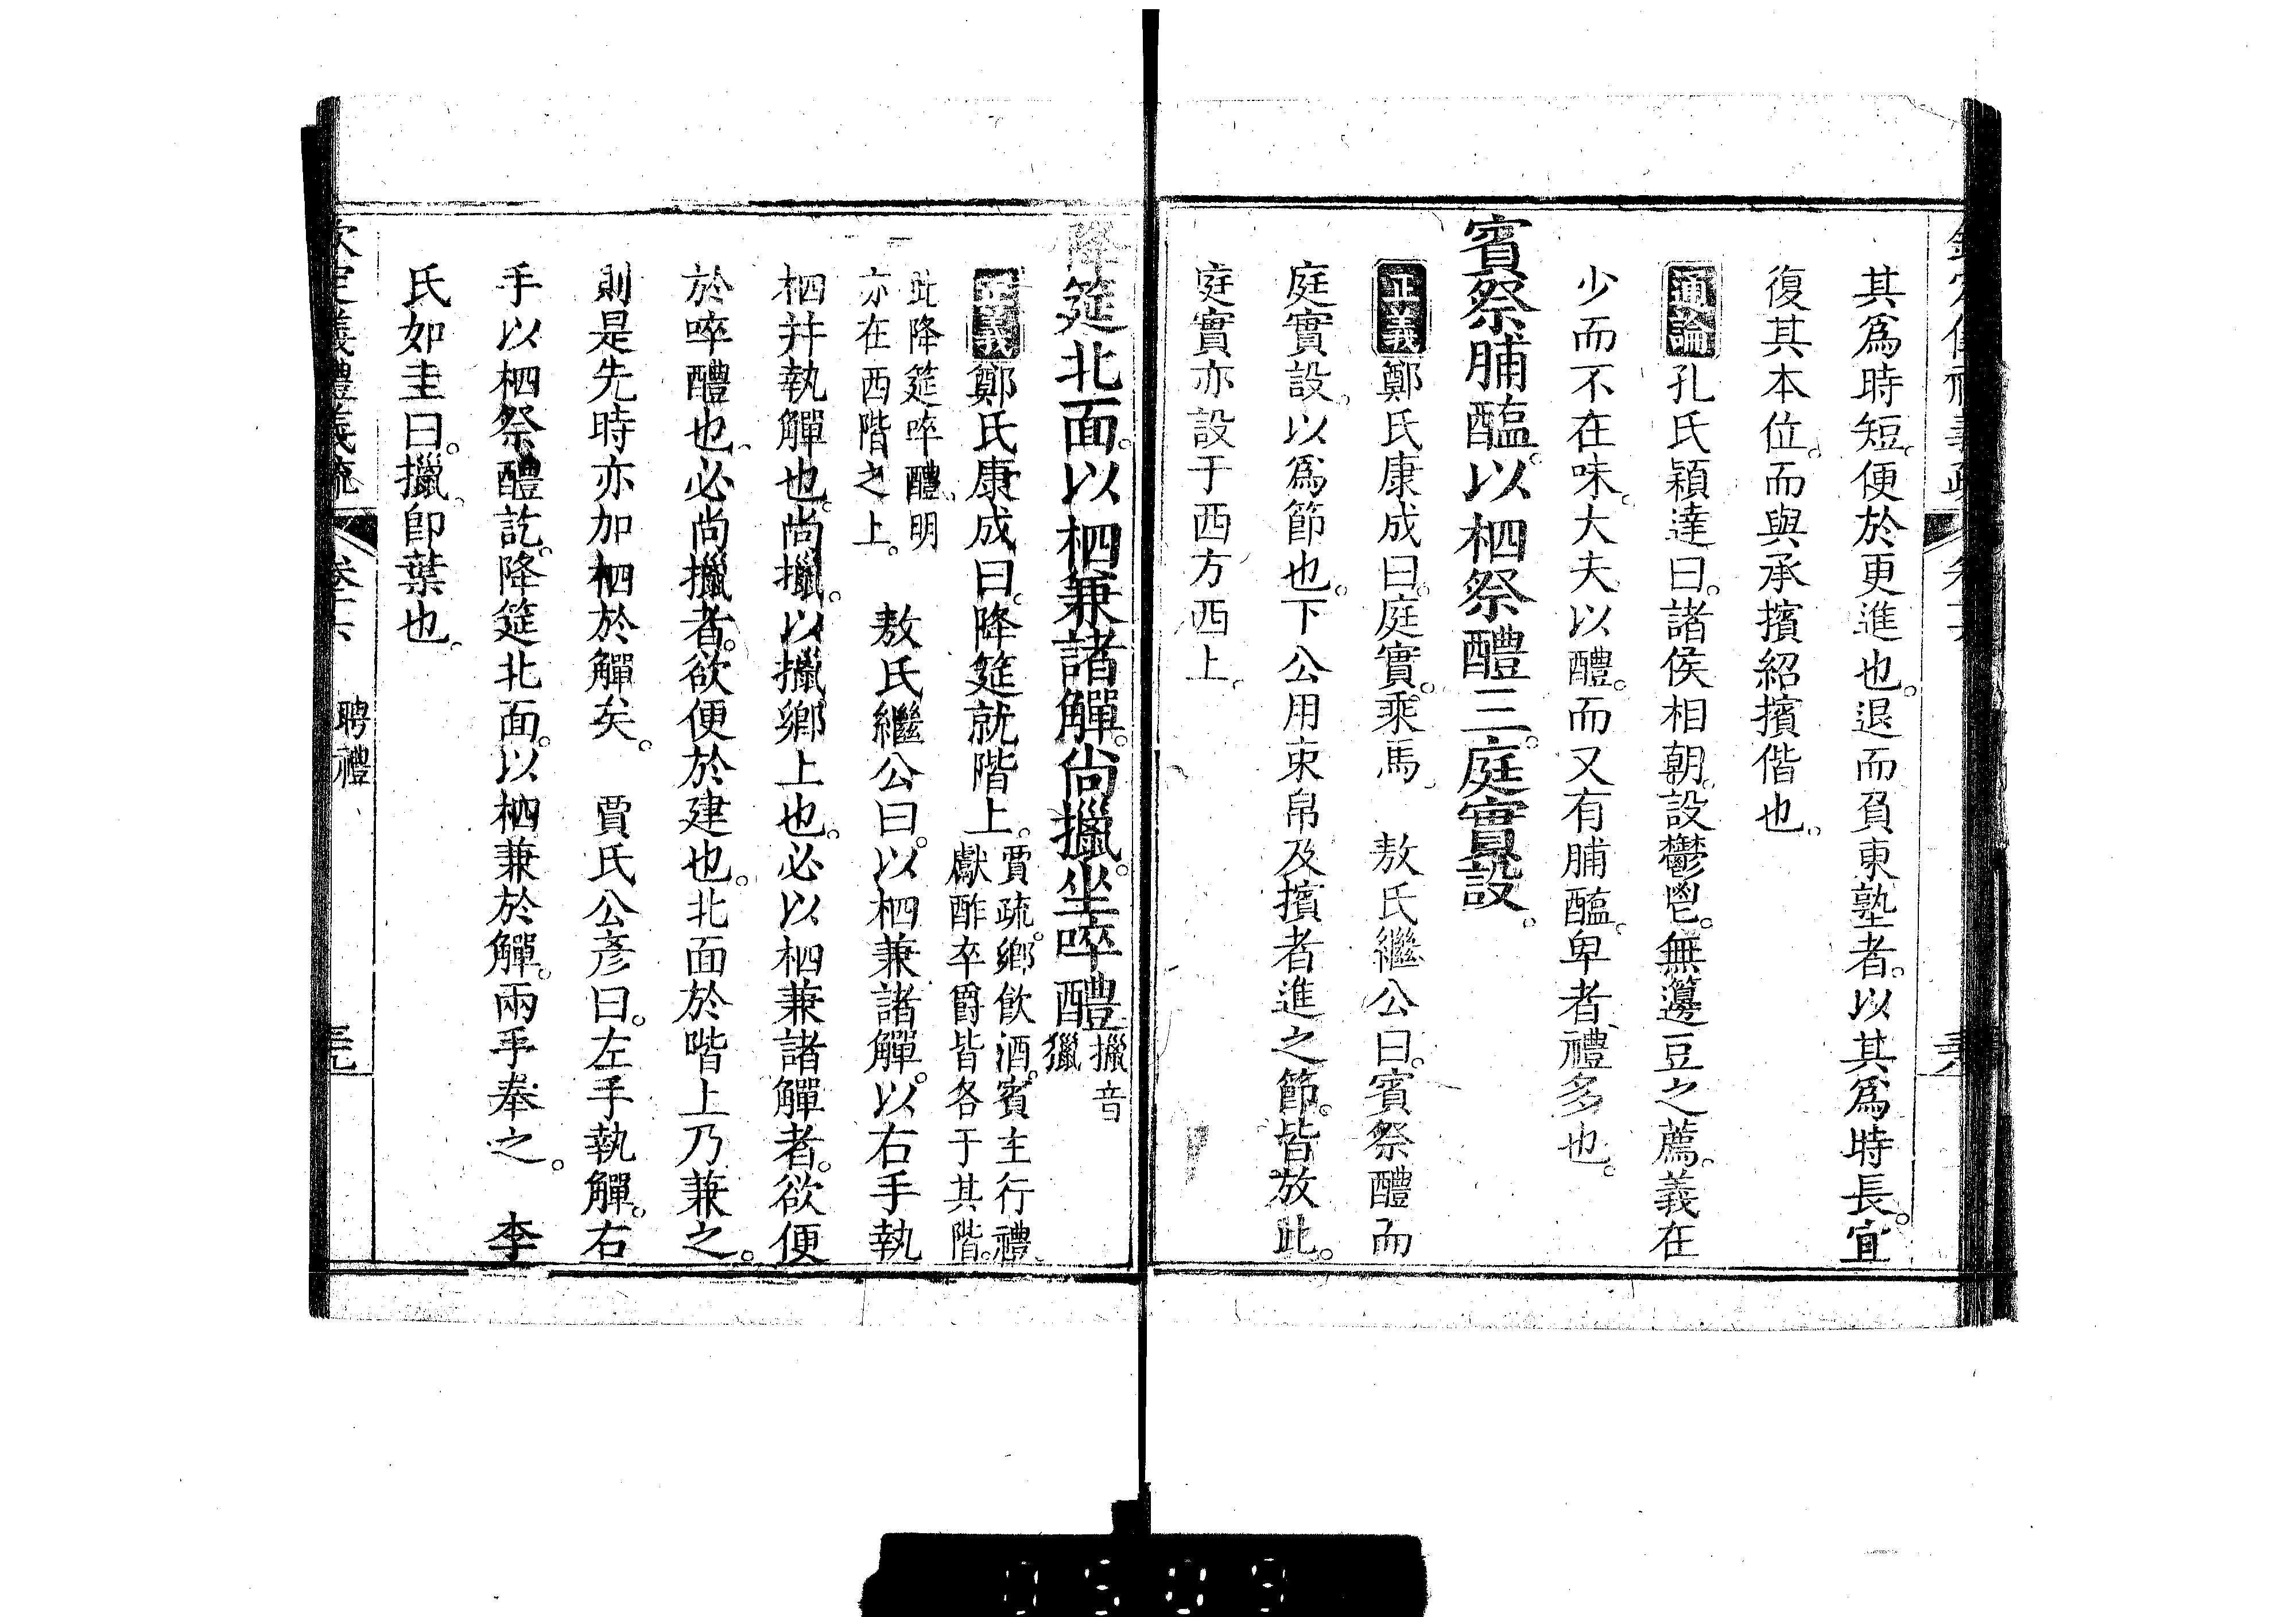 其爲時短。便於更進也。退而負東塾者。以其爲時長。宜
復其本位。而與承擯紹擯偕也。
通論孔氏穎達曰。諸侯相朝。設鬱鬯。無籩豆之薦。義在
少而不在味。大夫以醴。而又有脯醢。卑者禮多也。
賓祭脯醢。以柶祭醴三。庭實設。
正義鄭氏康成曰。庭實。乘馬。　敖氏繼公曰。賓祭醴而
庭實設。以爲節也。下公用束帛及擯者進之節。皆放此。
庭實亦設于西方西上。
降筵北面。以柶兼諸觶。尚擸。坐啐醴。擸音
獵
正義鄭氏康成曰。降筵就階上。賈疏。鄉飲酒。賓主行禮。
獻酢卒爵皆各于其階。
此降筵啐醴。明
亦在西階之上。　敖氏繼公曰。以柶兼諸觶。以右手執
柶幷執觶也。尚擸。以擸鄉上也。必以柶兼諸觶者。欲便
於啐醴也。必尚擸者。欲便於建也。北面於階上乃兼之。
則是先時亦加柶於觶矣。　賈氏公彥曰。左手執觶。右
手以柶祭醴訖。降筵北面。以柶兼於觶。兩手奉之。　李
氏如圭曰。擸。卽葉也。
聘禮